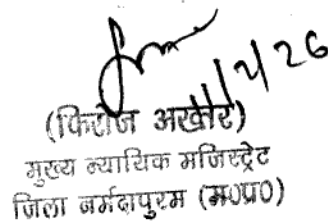 1/2/26
(फिरोज अख्तर)
मुख्य न्यायिक मजिस्ट्रेट
जिला नर्मदापुरम (म०प्र०)